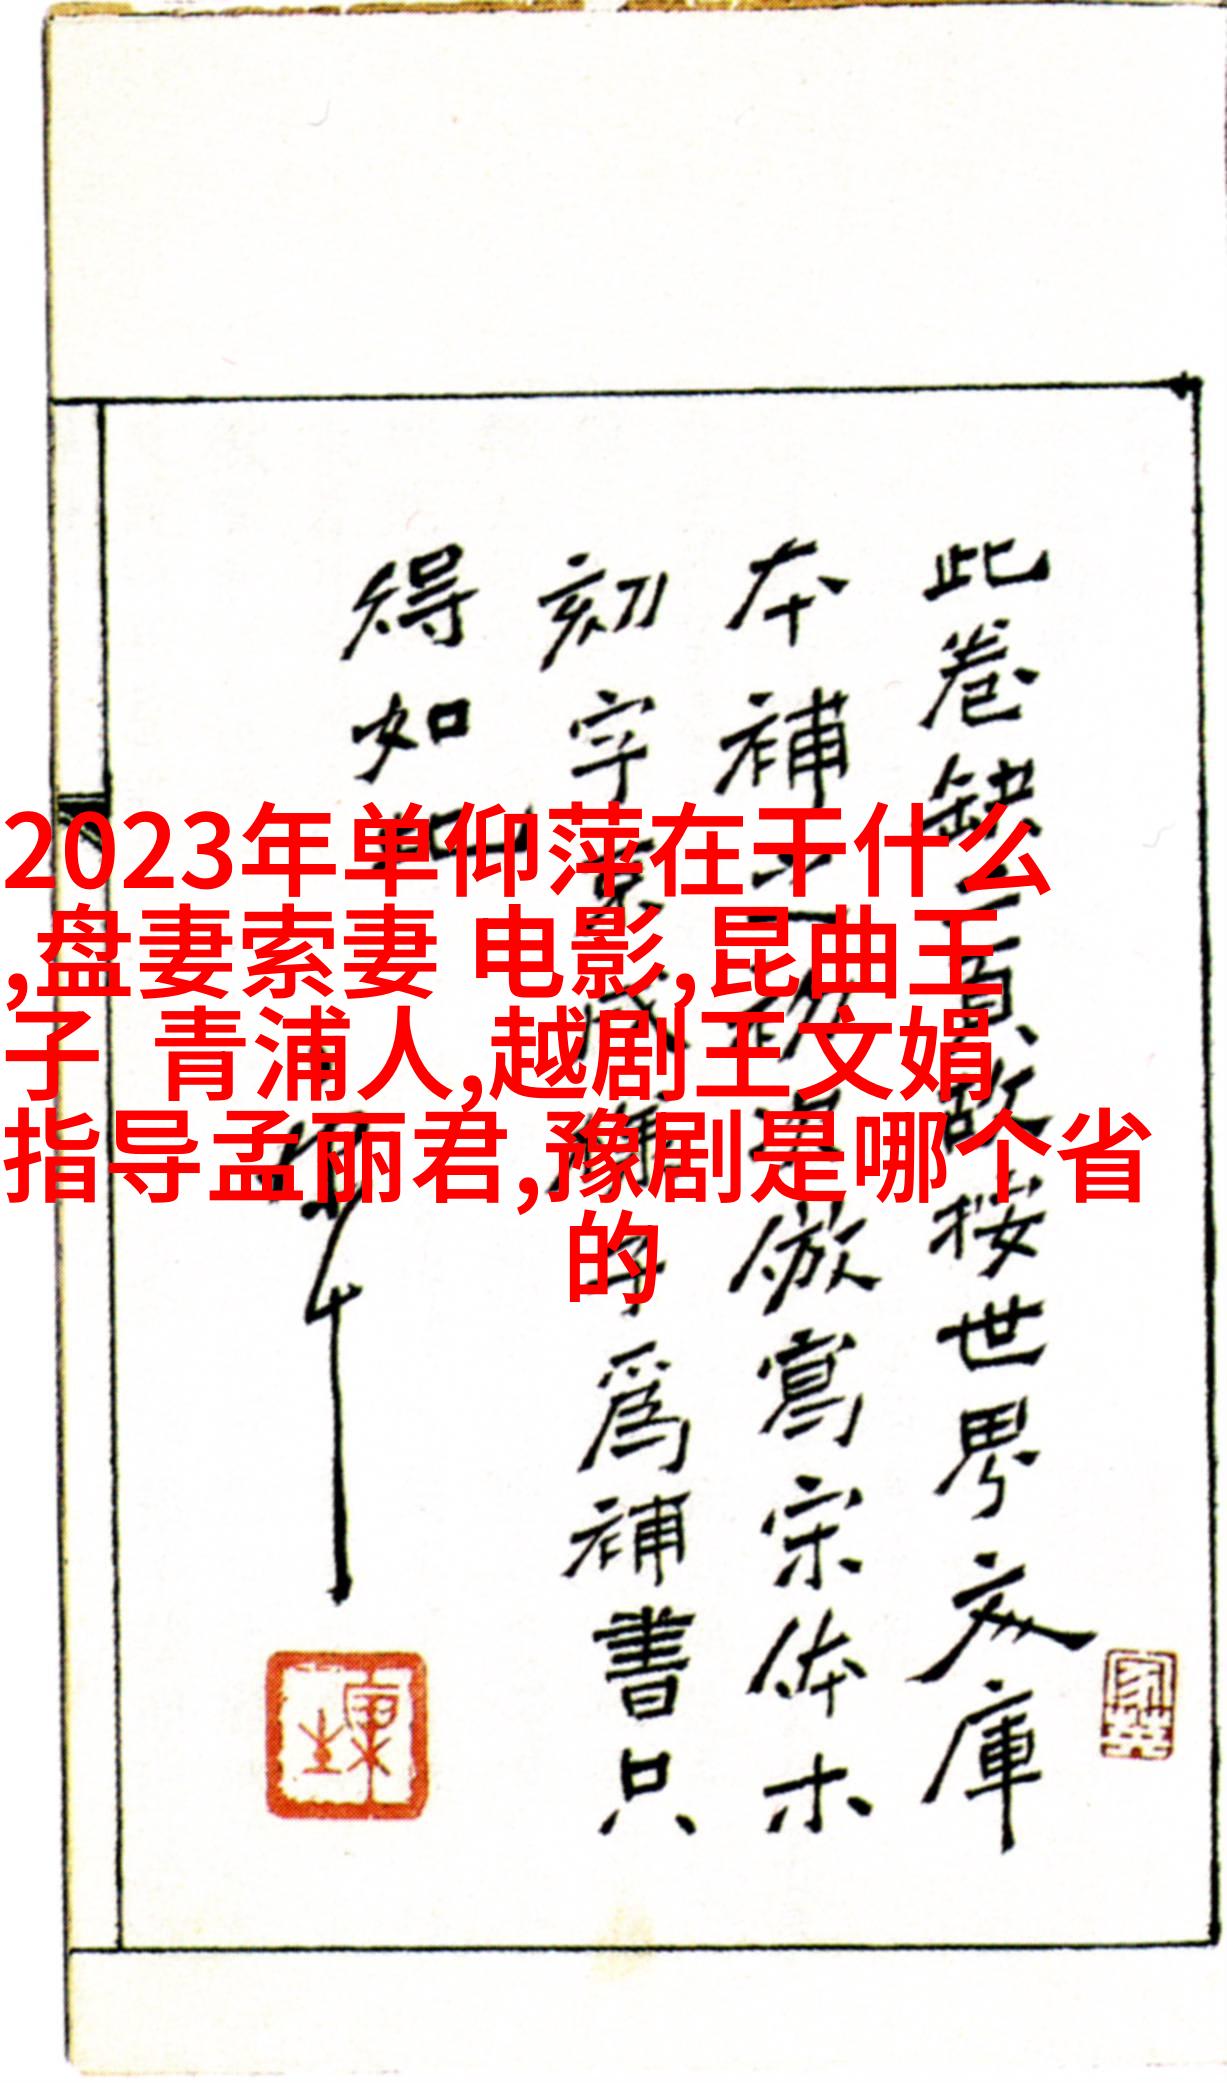 2023年单仰萍在干什么
,盘妻索妻 电影,昆曲王
子 青浦人,越剧王文娟
指导孟丽君,豫剧是哪个省
的
此卷缺二頁故按世界文庫
本補之倣寫宋体木
刻字字爲補書只
得如此